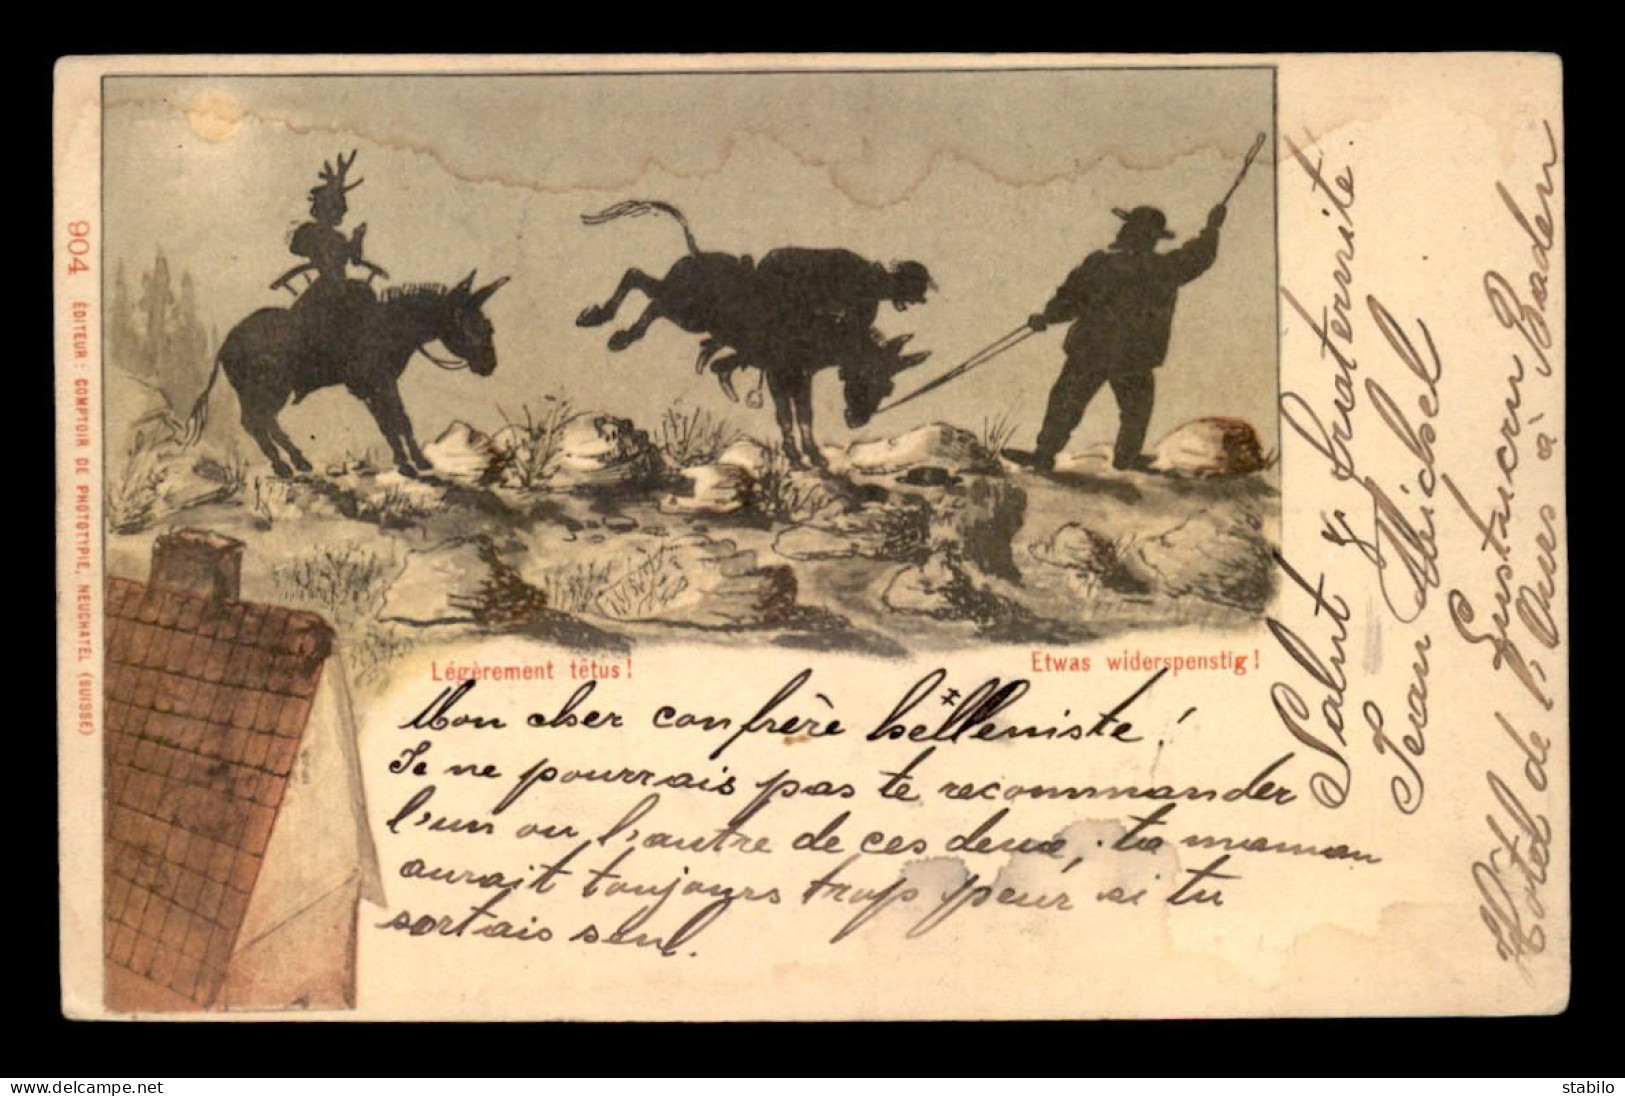 904 ÉDITEUR: COMPTOIR DE PHOTOTYPIE, NEUCHATEL (SUISSE)
Légèrement têtus!
Etwas widerspenstig!
Mon cher confrère hélleniste!
Je ne pourrais pas te recommander
l'un ou l'autre de ces deux, ta maman
aurait toujours trop peur si tu
sortais seul.
Salut & fraternité.
Jean Michel
Hôtel de l'Ours à Baden
www.delcampe.net
stabilo